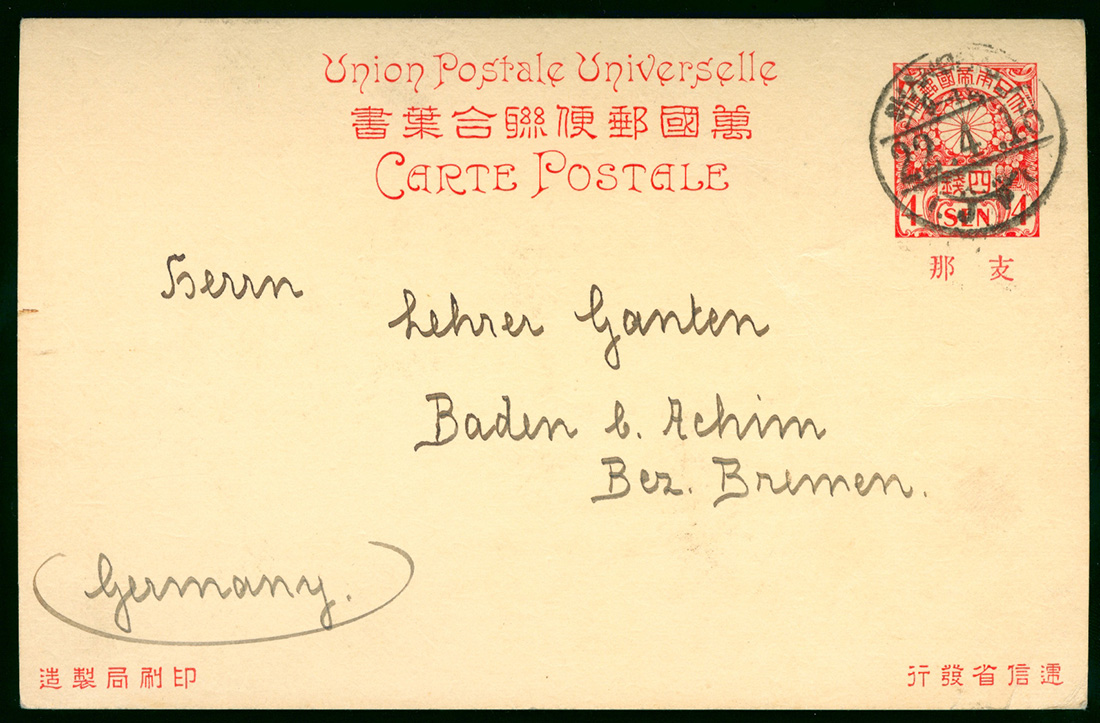 Union Postale Universelle
書葉合聯便郵國萬
CARTE POSTALE
四錢
4 SEN 4
那支
22.4.10
Herrn
Lehrer Ganten
Baden b. Achim
Bez. Bremen.
Germany.
造製局刷印
行發省信遞